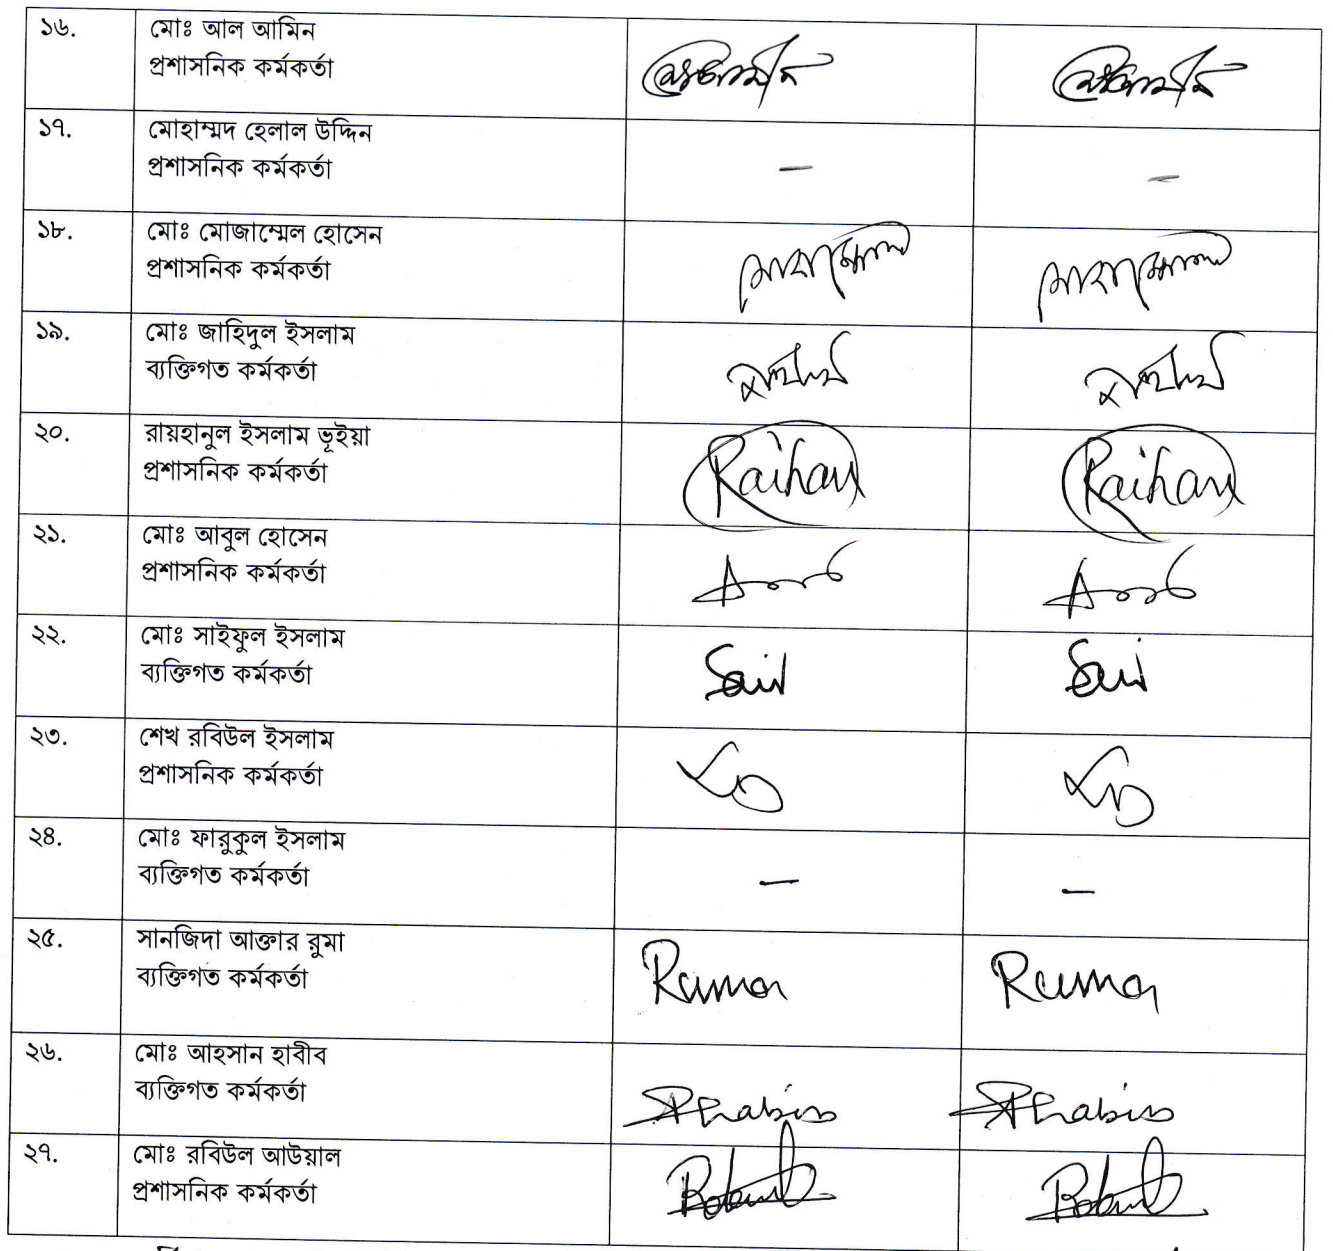 ১৬.
মোঃ আল আমিন
প্রশাসনিক কর্মকর্তা
১৭.
মোহাম্মদ হেলাল উদ্দিন
প্রশাসনিক কর্মকর্তা
–
–
১৮.
মোঃ মোজাম্মেল হোসেন
প্রশাসনিক কর্মকর্তা
১৯.
মোঃ জাহিদুল ইসলাম
ব্যক্তিগত কর্মকর্তা
২০.
রায়হানুল ইসলাম ভূইয়া
প্রশাসনিক কর্মকর্তা
Raihan
Raihan
২১.
মোঃ আবুল হোসেন
প্রশাসনিক কর্মকর্তা
২২.
মোঃ সাইফুল ইসলাম
ব্যক্তিগত কর্মকর্তা
২৩.
শেখ রবিউল ইসলাম
প্রশাসনিক কর্মকর্তা
২৪.
মোঃ ফারুকুল ইসলাম
ব্যক্তিগত কর্মকর্তা
–
–
২৫.
সানজিদা আক্তার রুমা
ব্যক্তিগত কর্মকর্তা
Ruma
Ruma
২৬.
মোঃ আহসান হাবীব
ব্যক্তিগত কর্মকর্তা
২৭.
মোঃ রবিউল আউয়াল
প্রশাসনিক কর্মকর্তা